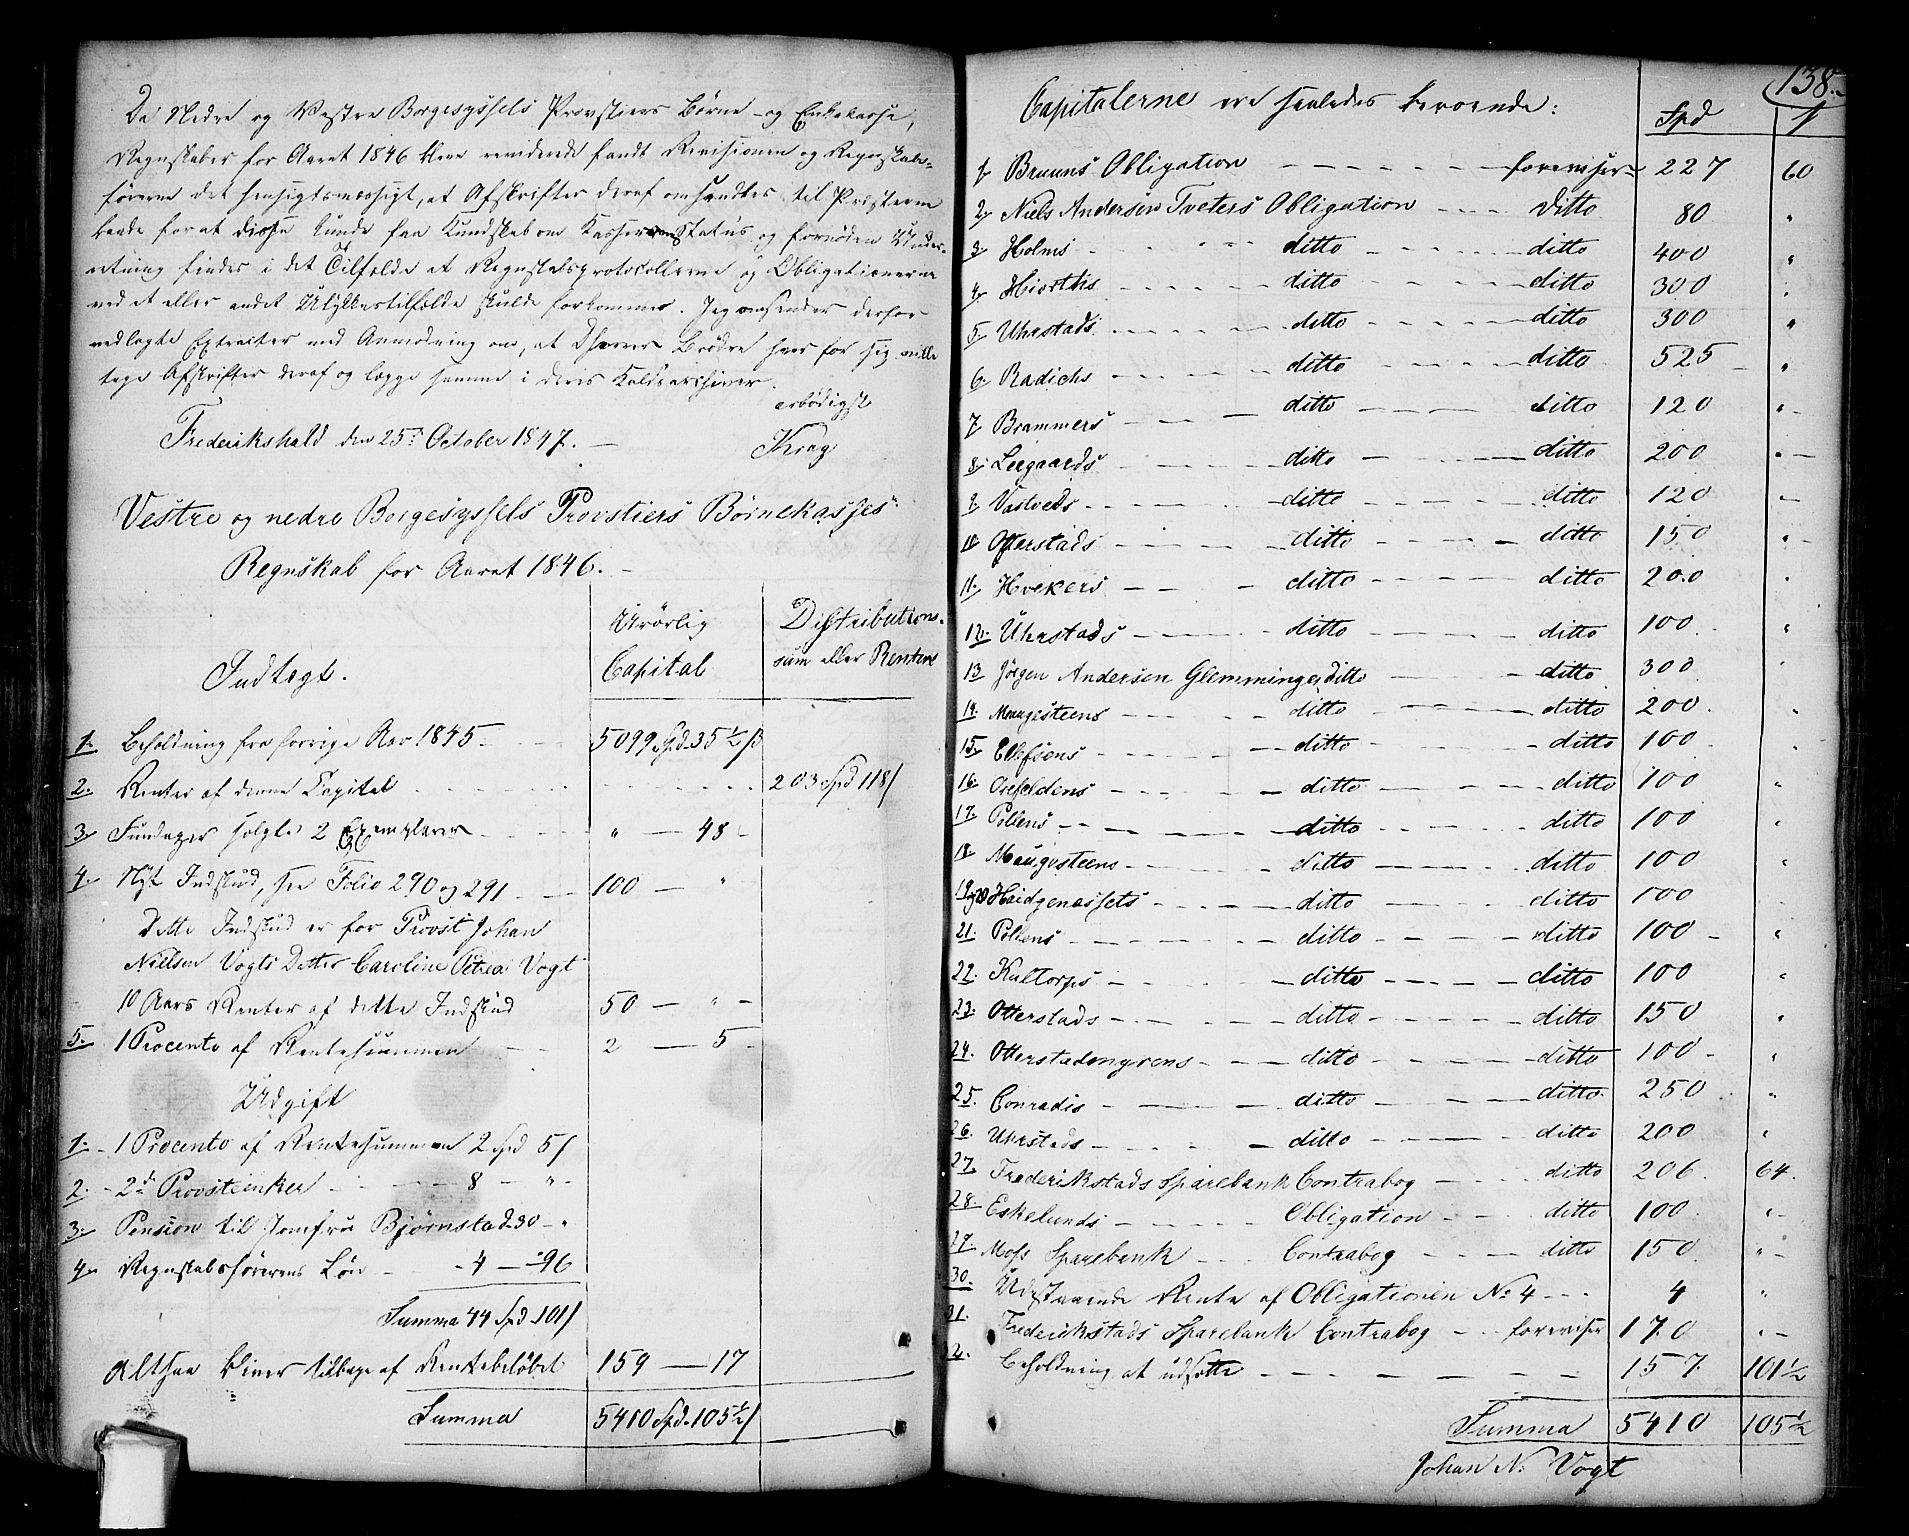 Da Nedre og Vestre Borgesyssels Provstiers Børne- og Enkekasse,
Regnskaber for Aaret 1846 bleve reviderede fandt Revisionen og Regnskabs-
førerne det hensigtsmæssigt, at Afskrifter deraf omsendtes til Præsterne
baade for at disse kunde faa Kundskab om Kassernes Status og fornøden Under-
retning findes i det Tilfælde at Regnskabsprotocollerne og Obligationerne
ved et eller andet Ulykkestilfælde skulde forkommes. Jeg omsender derfor
vedlagte Extracter med Anmodning om, at Dherrer Brødre hver for sig ville
tage Afskrifter deraf og lægge samme i deres Kaldsarchiver.
ærbødigst
Frederikshald den 25de October 1847. Krag
Vestre og nedre Borgesyssels Provstiers Børnekasses
Regnskab for Aaret 1846.
Indtægt. Urørlig Capital Distributions- sum eller Renterne
1. Beholdning fra forrige Aar 1845 5099 Spd 35½ β
2. Renter af denne Capital 203 Spd 118 β
3. Fundatser solgte 2 Exemplarer " — 48 -
4. Nyt Indskud, see Folio 290 og 291 100 — "
Dette Indskud er for Provst Johan
Nielsen Vogts Datter Caroline Petrea Vogt
10 Aars Renter af dette Indskud 50 — " -
5. 1 Procento af Rentesummen 2 — 5
Udgift
1. 1 Procento af Rentesummen 2 Spd 5 β
2. 2de Provstienker 8 — " -
3. Pension til Jomfru Bjørnstad 30 - "
4. Regnskabsførerens Løn 4 — 96
Summa 44 Spd 101 β
Altsaa bliver tilbage af Rentebeløbet 159 — 17
Summa 5410 Spd 105½ β
138.
Capitalerne ere saaledes beroende: Spd β
1. Bruuns Obligation foreviser 227 60
2. Niels Andersen Tveters Obligation ditto 80 "
3. Holms ditto ditto 400 "
4. Hiorths ditto ditto 300 "
5. Uhrstads ditto ditto 300 "
6. Radichs ditto ditto 525 "
7. Brammers ditto ditto 120 "
8. Leegaards ditto ditto 200 "
9. Vastveds ditto ditto 120 "
10. Otterstads ditto ditto 150 "
11. Hvekers ditto ditto 200 "
12. Uhrstads ditto ditto 100 "
13. Jørgen Andersen Glemminges ditto ditto 300 "
14. Maugesteens ditto ditto 200 "
15. Ellefsens ditto ditto 100 "
16. ditto ditto 100 "
17. Pollens ditto ditto 100 "
18. Maugesteens ditto ditto 100 "
19 og 20 ditto ditto 100 "
21. Pollens ditto ditto 100 "
22. Kultorps ditto ditto 100 "
23. Otterstads ditto ditto 150 "
24. ditto ditto 100 "
25. Conradis ditto ditto 250 "
26. Uhrstads ditto ditto 200 "
27. Frederikstads Sparebank Contrabog ditto 206 64.
28. Eskelunds Obligation ditto 100 "
29. Moss Sparebank Contrabog ditto 150 "
30. Udestaaende Rente af Obligationen No 4 4 "
31. Frederikstads Sparebank Contrabog foreviser 170 "
32. Beholdning at udsætte 157. 101½
Summa 5410 105½
Johan N. Vogt